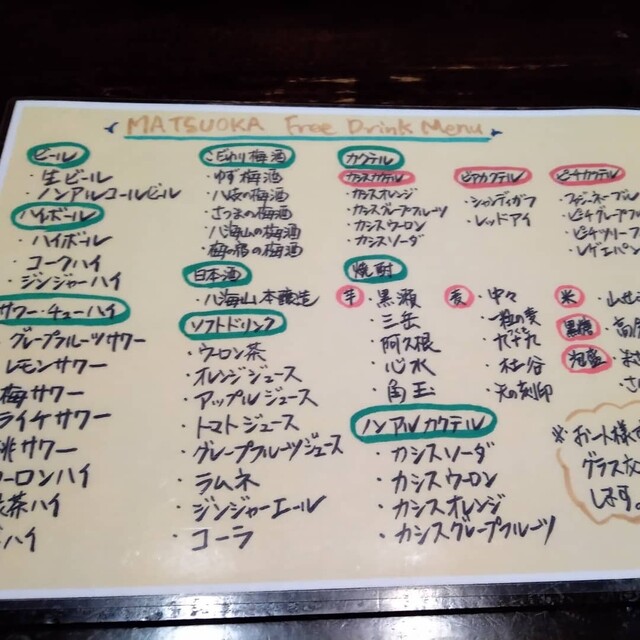 MATSUOKA Free Drink Menu
ビール
・生ビール
・ノンアルコールビール
ハイボール
・ハイボール
・コークハイ
・ジンジャーハイ
サワー・チューハイ
グレープフルーツサワー
レモンサワー
梅サワー
ライチサワー
サワー
ーロンハイ
茶ハイ
ハイ
こだわり梅酒
・ゆず梅酒
・八岐の梅酒
・さつまの梅酒
・八海山の梅酒
・梅の宿の梅酒
日本酒
・八海山本醸造
ソフトドリンク
・ウーロン茶
・オレンジジュース
・アップルジュース
・トマトジュース
・グレープフルーツジュース
・ラムネ
・ジンジャーエール
・コーラ
カクテル
カシスカクテル
・カシスオレンジ
・カシスグレープフルーツ
・カシスウーロン
・カシスソーダ
ビアカクテル
・シャンディガフ
・レッドアイ
ピーチカクテル
・ファジーネーブル
・ピーチグレープフ
・ピーチツリーフ
・レゲエパン
焼酎
芋
・黒瀬
・三岳
・阿久根
・心水
・角玉
麦
・中々
・一粒の麦
・杜谷
・天の刻印
米
・山せ
黒糖
泡盛
・さ
ノンアルカクテル
・カシスソーダ
・カシスウーロン
・カシスオレンジ
・カシスグレープフルーツ
※お一人様
グラス
します。